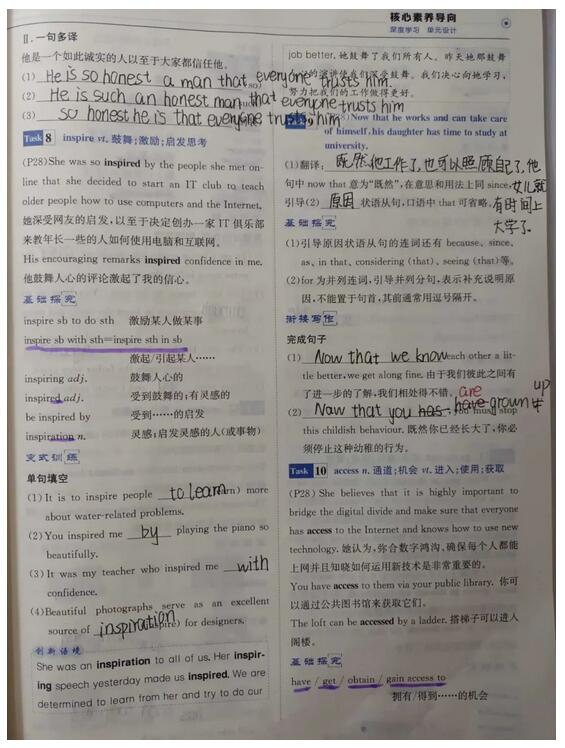 核心素养导向
深度学习 单元设计
Ⅱ.一句多译
他是一个如此诚实的人以至于大家都信任他。
(1) He is so honest a man that everyone trusts him.
(2) He is such an honest man that everyone trusts him
(3) so honest he is that everyone trusts him
Task 8 inspire vt. 鼓舞;激励;启发思考
(P28)She was so inspired by the people she met on-
line that she decided to start an IT club to teach
older people how to use computers and the Internet.
她深受网友的启发,以至于决定创办一家 IT 俱乐部
来教年长一些的人如何使用电脑和互联网。
His encouraging remarks inspired confidence in me.
他鼓舞人心的评论激起了我的信心。
基础探究
inspire sb to do sth 激励某人做某事
inspire sb with sth=inspire sth in sb
激起/引起某人……
inspiring adj. 鼓舞人心的
inspired adj. 受到鼓舞的;有灵感的
be inspired by 受到……的启发
inspiration n. 灵感;启发灵感的人(或事物)
变式训练
单句填空
(1)It is to inspire people to learn (learn) more
about water-related problems.
(2)You inspired me by playing the piano so
beautifully.
(3)It was my teacher who inspired me with
confidence.
(4)Beautiful photographs serve as an excellent
source of inspiration (inspire) for designers.
创新语境
She was an inspiration to all of us. Her inspir-
ing speech yesterday made us inspired. We are
determined to learn from her and try to do our
job better. 她鼓舞了我们所有人。昨天她那鼓舞
的演讲使我们深受鼓舞。我们决心向她学习,
努力把我们的工作做得更好。
Task 9 (P28)Now that he works and can take care
of himself, his daughter has time to study at
university.
(1)翻译: 既然他工作了,也可以照顾自己了,他
女儿就有时间上大学了.
句中 now that 意为“既然”,在意思和用法上同 since,
引导(2) 原因 状语从句,口语中 that 可省略。
基础探究
(1)引导原因状语从句的连词还有 because、since、
as、in that、considering (that)、seeing (that)等。
(2)for 为并列连词,引导并列分句,表示补充说明原
因,不能置于句首,其前通常用逗号隔开。
衔接写作
完成句子
(1) Now that we know each other a lit-
tle better, we get along fine. 由于我们彼此之间有
了进一步的了解,我们相处得不错。
(2) Now that you has have are grown up, you must stop
this childish behaviour. 既然你已经长大了,你必
须停止这种幼稚的行为。
Task 10 access n. 通道;机会 vt. 进入;使用;获取
(P28) She believes that it is highly important to
bridge the digital divide and make sure that everyone
has access to the Internet and knows how to use new
technology. 她认为,弥合数字鸿沟、确保每个人都能
上网并且知晓如何运用新技术是非常重要的。
You have access to them via your public library. 你可
以通过公共图书馆来获取它们。
The loft can be accessed by a ladder. 搭梯子可以进入
阁楼。
基础探究
have / get / obtain / gain access to
拥有/得到……的机会